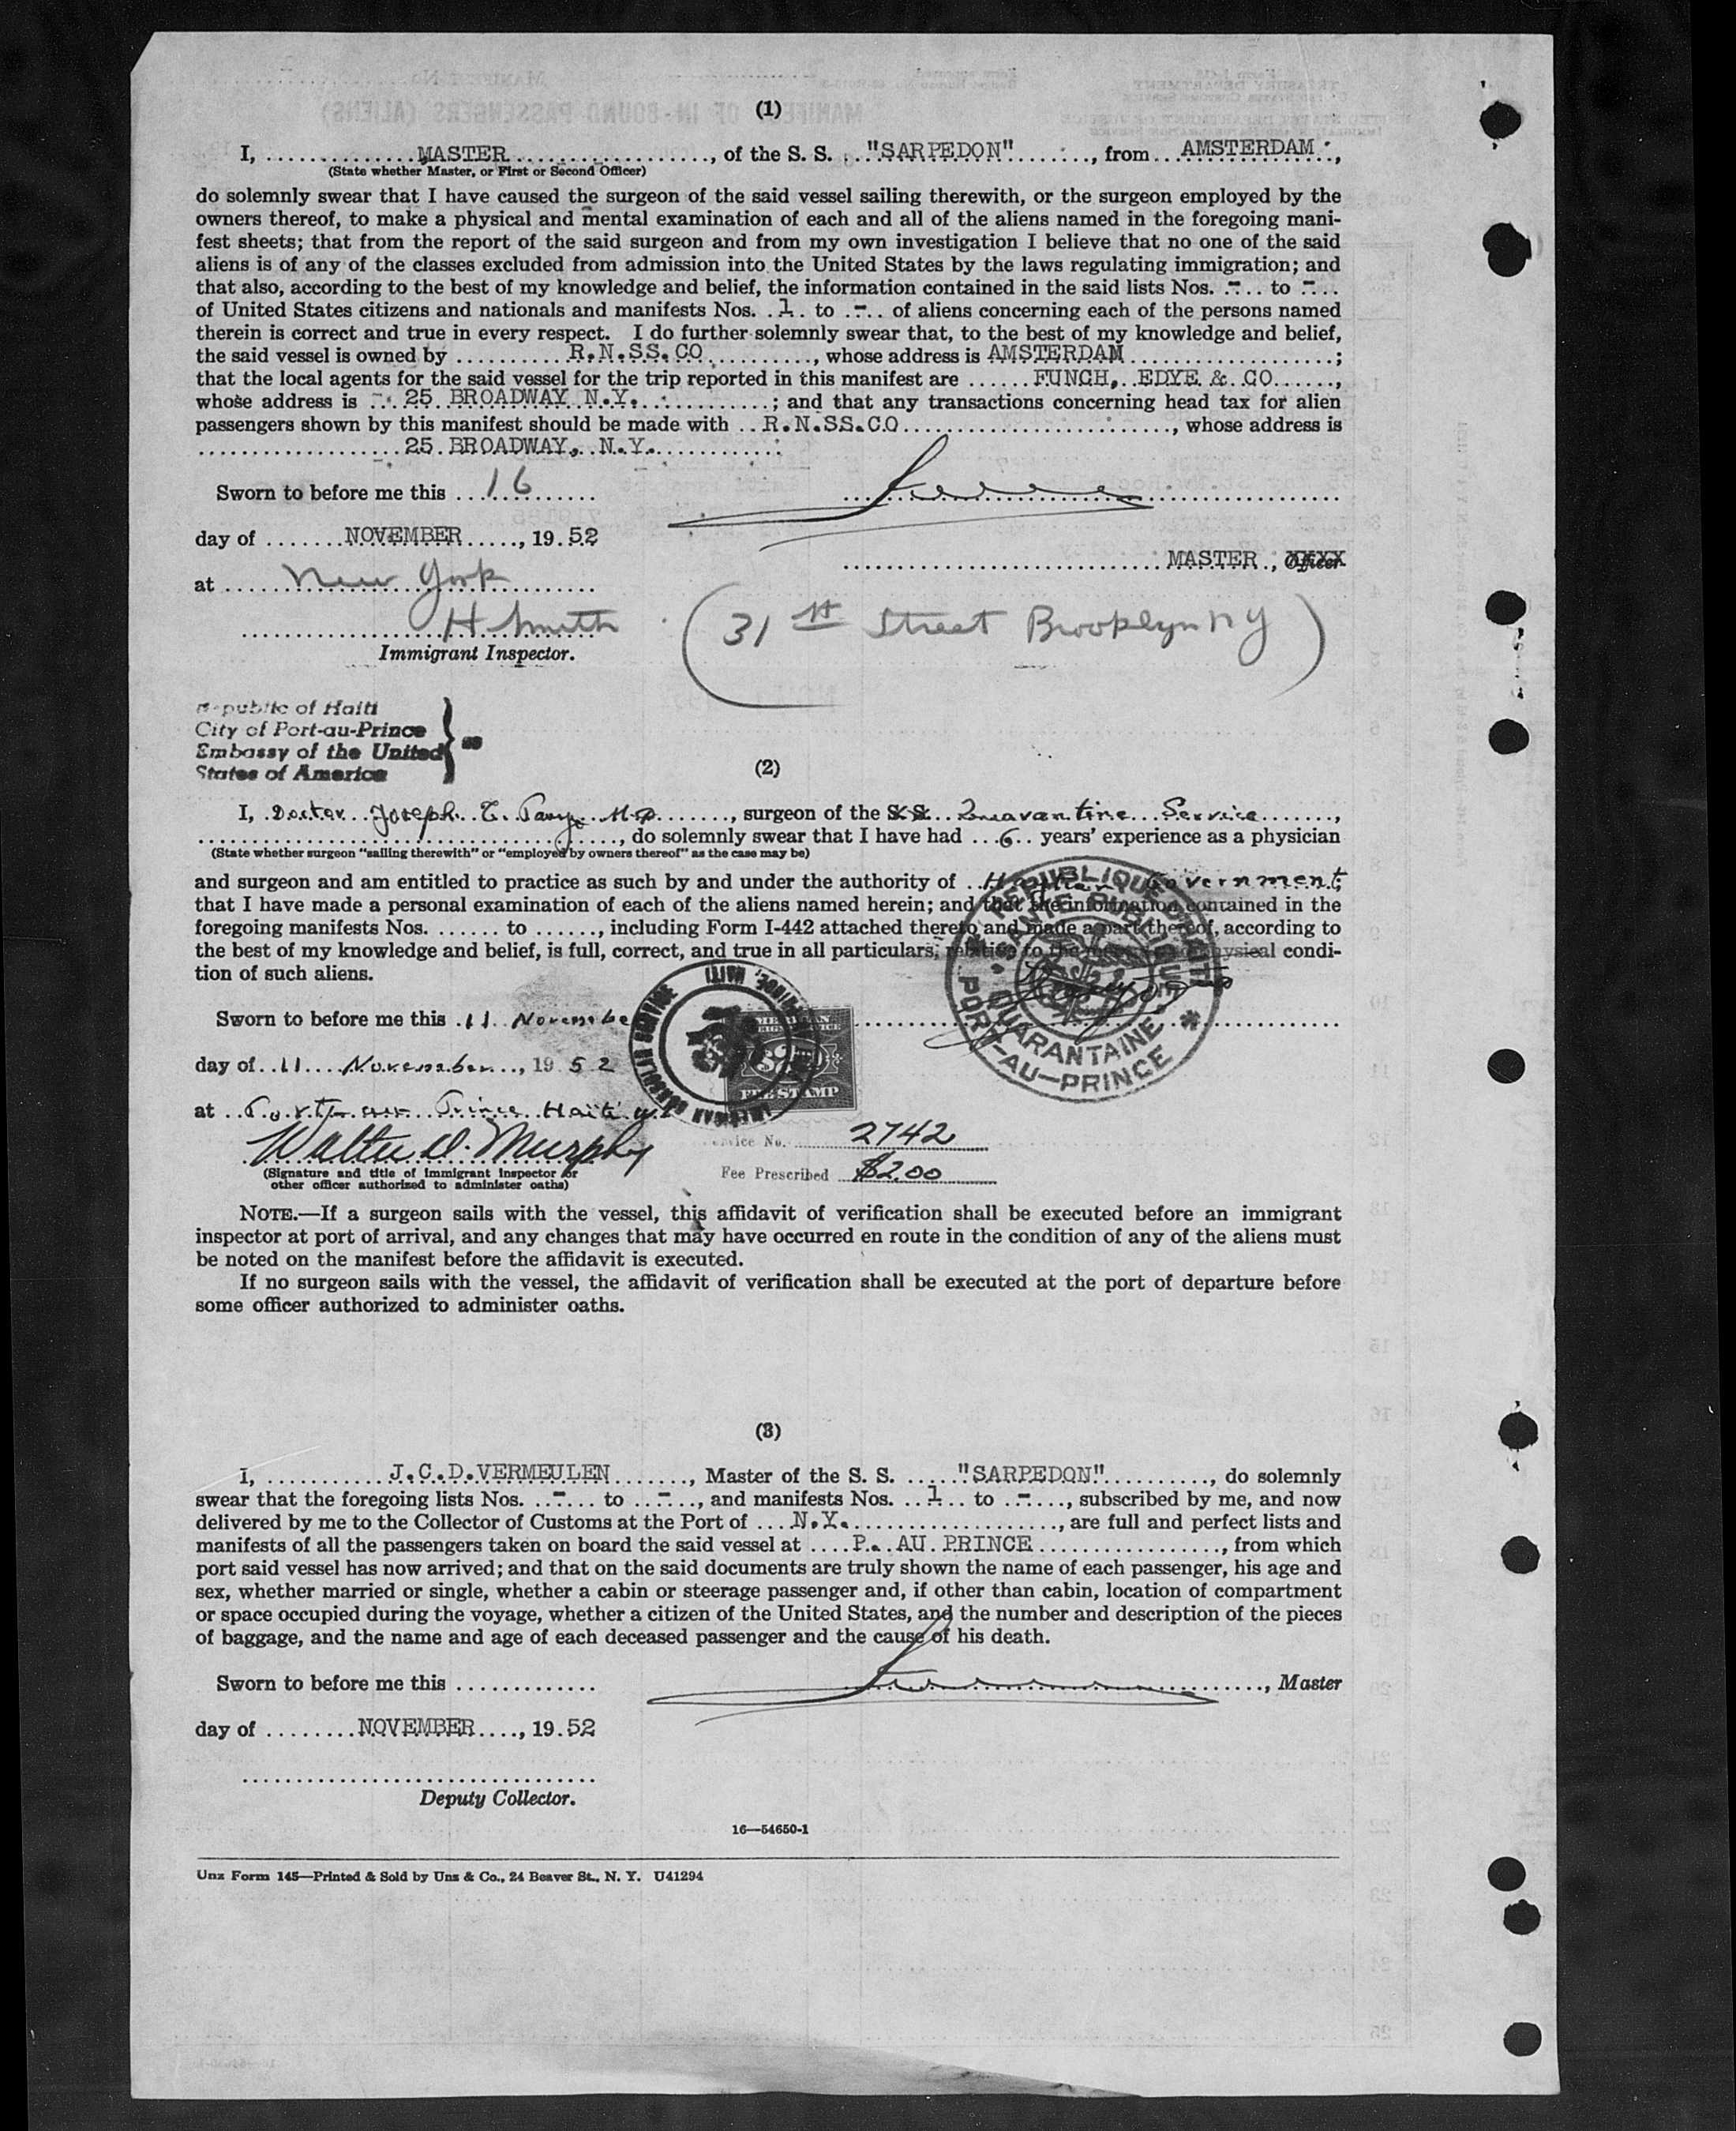 (1)
I, ................MASTER..................., of the S. S. ..."SARPEDON"......, from...AMSTERDAM.,
(State whether Master, or First or Second Officer)
do solemnly swear that I have caused the surgeon of the said vessel sailing therewith, or the surgeon employed by the
owners thereof, to make a physical and mental examination of each and all of the aliens named in the foregoing mani-
fest sheets; that from the report of the said surgeon and from my own investigation I believe that no one of the said
aliens is of any of the classes excluded from admission into the United States by the laws regulating immigration; and
that also, according to the best of my knowledge and belief, the information contained in the said lists Nos. .-... to .-...
of United States citizens and nationals and manifests Nos. ..1.. to ..-.. of aliens concerning each of the persons named
therein is correct and true in every respect. I do further solemnly swear that, to the best of my knowledge and belief,
the said vessel is owned by ...........R.N.SS.CO..........., whose address is AMSTERDAM.....................;
that the local agents for the said vessel for the trip reported in this manifest are ......FUNCH, EDYE & CO......,
whose address is ... 25 BROADWAY N.Y. ............; and that any transactions concerning head tax for alien
passengers shown by this manifest should be made with ..R.N.SS.CO..........................., whose address is
...................25 BROADWAY, N.Y..............
Sworn to before me this ...16.........
day of .......NOVEMBER....., 19.52
MASTER, Officer
at ......New York..........
H. Smith
(31 st Street Brooklyn NY)
Immigrant Inspector.
Republic of Haiti
City of Port-au-Prince
Embassy of the United
States of America
} ss
(2)
I, Doctor Joseph M.D......., surgeon of the S.S. Quarantine Service.......,
........................................, do solemnly swear that I have had ...6.. years' experience as a physician
(State whether surgeon "sailing therewith" or "employed by owners thereof" as the case may be)
and surgeon and am entitled to practice as such by and under the authority of ..Haitian Government;
that I have made a personal examination of each of the aliens named herein; and that the information contained in the
foregoing manifests Nos. ...... to ......, including Form I-442 attached thereto and made a part thereof, according to
the best of my knowledge and belief, is full, correct, and true in all particulars, relative to the physical condi-
tion of such aliens.
REPUBLIQUE D'HAITI
SANTE PUBLIQUE
QUARANTAINE
PORT-AU-PRINCE
Sworn to before me this .11 Novembe
AMERICAN CONSULAR SERVICE HAITI
AMERICAN
FOREIGN SERVICE
$2
FEE STAMP
day of..11....November..., 19 52
at ..Port-au-Prince..Haiti
Service No. 2742
Walter D. Murphy
Fee Prescribed $2.00
(Signature and title of immigrant inspector or
other officer authorized to administer oaths)
NOTE.—If a surgeon sails with the vessel, this affidavit of verification shall be executed before an immigrant
inspector at port of arrival, and any changes that may have occurred en route in the condition of any of the aliens must
be noted on the manifest before the affidavit is executed.
If no surgeon sails with the vessel, the affidavit of verification shall be executed at the port of departure before
some officer authorized to administer oaths.
(3)
I, ............J.C.D.VERMEULEN......., Master of the S. S. ....."SARPEDON".........., do solemnly
swear that the foregoing lists Nos. ..-.... to ..-..., and manifests Nos. ..1.. to ..-...., subscribed by me, and now
delivered by me to the Collector of Customs at the Port of ....N.Y......................, are full and perfect lists and
manifests of all the passengers taken on board the said vessel at ....P. AU PRINCE.................., from which
port said vessel has now arrived; and that on the said documents are truly shown the name of each passenger, his age and
sex, whether married or single, whether a cabin or steerage passenger and, if other than cabin, location of compartment
or space occupied during the voyage, whether a citizen of the United States, and the number and description of the pieces
of baggage, and the name and age of each deceased passenger and the cause of his death.
Sworn to before me this .............
......................................, Master
day of ........NOVEMBER...., 19.52
Deputy Collector.
16—54650-1
Unz Form 145—Printed & Sold by Unz & Co., 24 Beaver St., N. Y. U41294